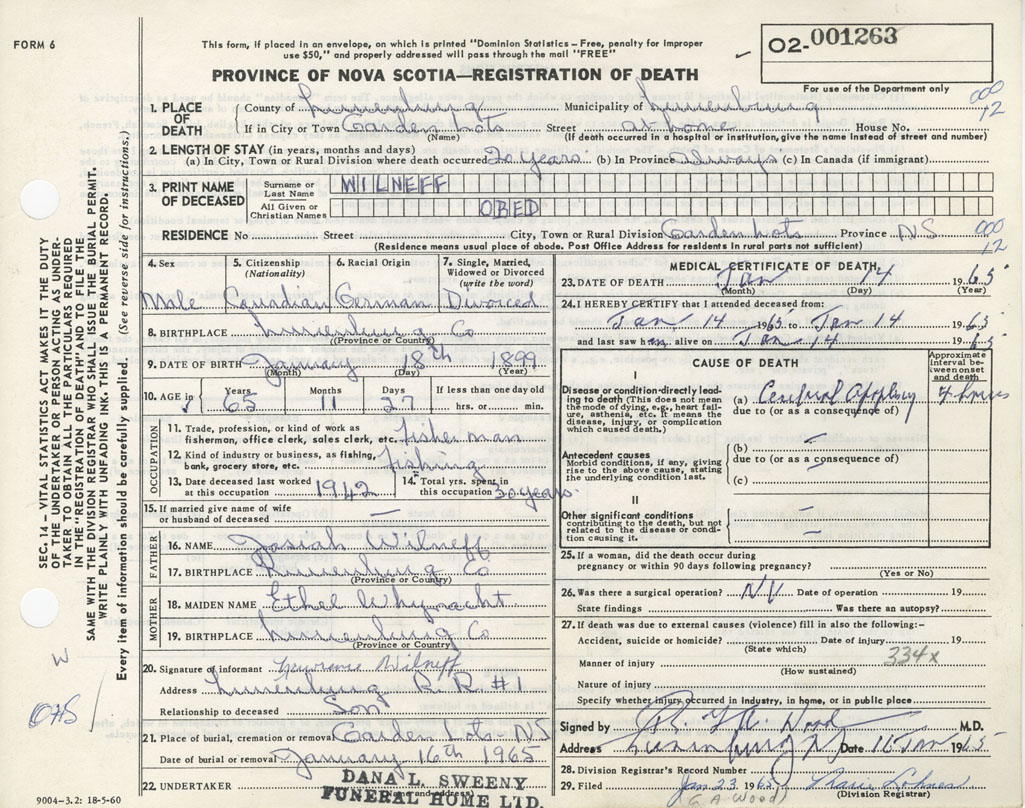 FORM 6
This form, if placed in an envelope, on which is printed "Dominion Statistics – Free, penalty for improper
use $50," and properly addressed will pass through the mail "FREE"
02-001263
For use of the Department only
PROVINCE OF NOVA SCOTIA—REGISTRATION OF DEATH
000
12
1. PLACE OF DEATH County of Lunenburg Municipality of Lunenburg
If in City or Town Garden Lots Street at home House No.
(Name) (If death occurred in a hospital or institution, give the name instead of street and number)
2. LENGTH OF STAY (in years, months and days)
(a) In City, Town or Rural Division where death occurred 20 years (b) In Province Always (c) In Canada (if immigrant)
3. PRINT NAME OF DECEASED Surname or Last Name WILNEFF
All Given or Christian Names OBED
RESIDENCE No Street City, Town or Rural Division Garden Lots Province NS
000
12
(Residence means usual place of abode. Post Office Address for residents in rural parts not sufficient)
4. Sex Male
5. Citizenship (Nationality) Canadian
6. Racial Origin German
7. Single, Married, Widowed or Divorced (write the word) Divorced
8. BIRTHPLACE Lunenburg Co
(Province or Country)
9. DATE OF BIRTH January 18th 1899
(Month) (Day) (Year)
10. AGE in Years 65 Months 11 Days 27 If less than one day old hrs. or min.
OCCUPATION
11. Trade, profession, or kind of work as
fisherman, office clerk, sales clerk, etc. fisherman
12. Kind of industry or business, as fishing,
bank, grocery store, etc. fishing
13. Date deceased last worked
at this occupation 1942
14. Total yrs. spent in
this occupation 30 years
15. If married give name of wife
or husband of deceased —
FATHER
16. NAME Josiah Wilneff
17. BIRTHPLACE Lunenburg Co
(Province or Country)
MOTHER
18. MAIDEN NAME Ethel Whynacht
19. BIRTHPLACE Lunenburg Co
(Province or Country)
20. Signature of informant Lawrence Wilneff
Address Lunenburg R.R. #1
Relationship to deceased Son
21. Place of burial, cremation or removal Garden Lots - NS
Date of burial or removal January 16th 1965
22. UNDERTAKER DANA L. SWEENY
FUNERAL HOME LTD.
(Name and address)
9004-3.2: 18-5-60
MEDICAL CERTIFICATE OF DEATH
23. DATE OF DEATH Jan 14 1965
(Month) (Day) (Year)
24. I HEREBY CERTIFY that I attended deceased from:
Jan 14 1965 to Jan 14 1965
and last saw him alive on Jan 14 1965
CAUSE OF DEATH
Approximate interval between onset and death
I
Disease or condition directly leading to death (This does not mean the mode of dying, e.g., heart failure, asthenia, etc. It means the disease, injury, or complication which caused death.
(a) Cerebral Apoplexy 7 hours
due to (or as a consequence of)
Antecedent causes
Morbid conditions, if any, giving rise to the above cause, stating the underlying condition last.
(b) —
due to (or as a consequence of)
(c)
II
Other significant conditions
contributing to the death, but not related to the disease or condition causing it.
25. If a woman, did the death occur during
pregnancy or within 90 days following pregnancy?
(Yes or No)
26. Was there a surgical operation? Date of operation 19
State findings Was there an autopsy?
27. If death was due to external causes (violence) fill in also the following:-
Accident, suicide or homicide? Date of injury 19
(State which)
334x
Manner of injury
(How sustained)
Nature of injury
Specify whether injury occurred in Industry, in home, or in public place
Signed by Wood M.D.
Address Lunenburg Date 16 Jan 1965
28. Division Registrar's Record Number
29. Filed Jan 23 1965
(Division Registrar)
G.A. Wood
SEC. 14 – VITAL STATISTICS ACT MAKES IT THE DUTY
OF THE UNDERTAKER OR PERSON ACTING AS UNDER-
TAKER TO OBTAIN ALL THE PARTICULARS REQUIRED
IN THE "REGISTRATION OF DEATH" AND TO FILE THE
SAME WITH THE DIVISION REGISTRAR WHO SHALL ISSUE THE BURIAL PERMIT.
WRITE PLAINLY WITH UNFADING INK. THIS IS A PERMANENT RECORD.
Every item of information should be carefully supplied. (See reverse side for instructions.)
W